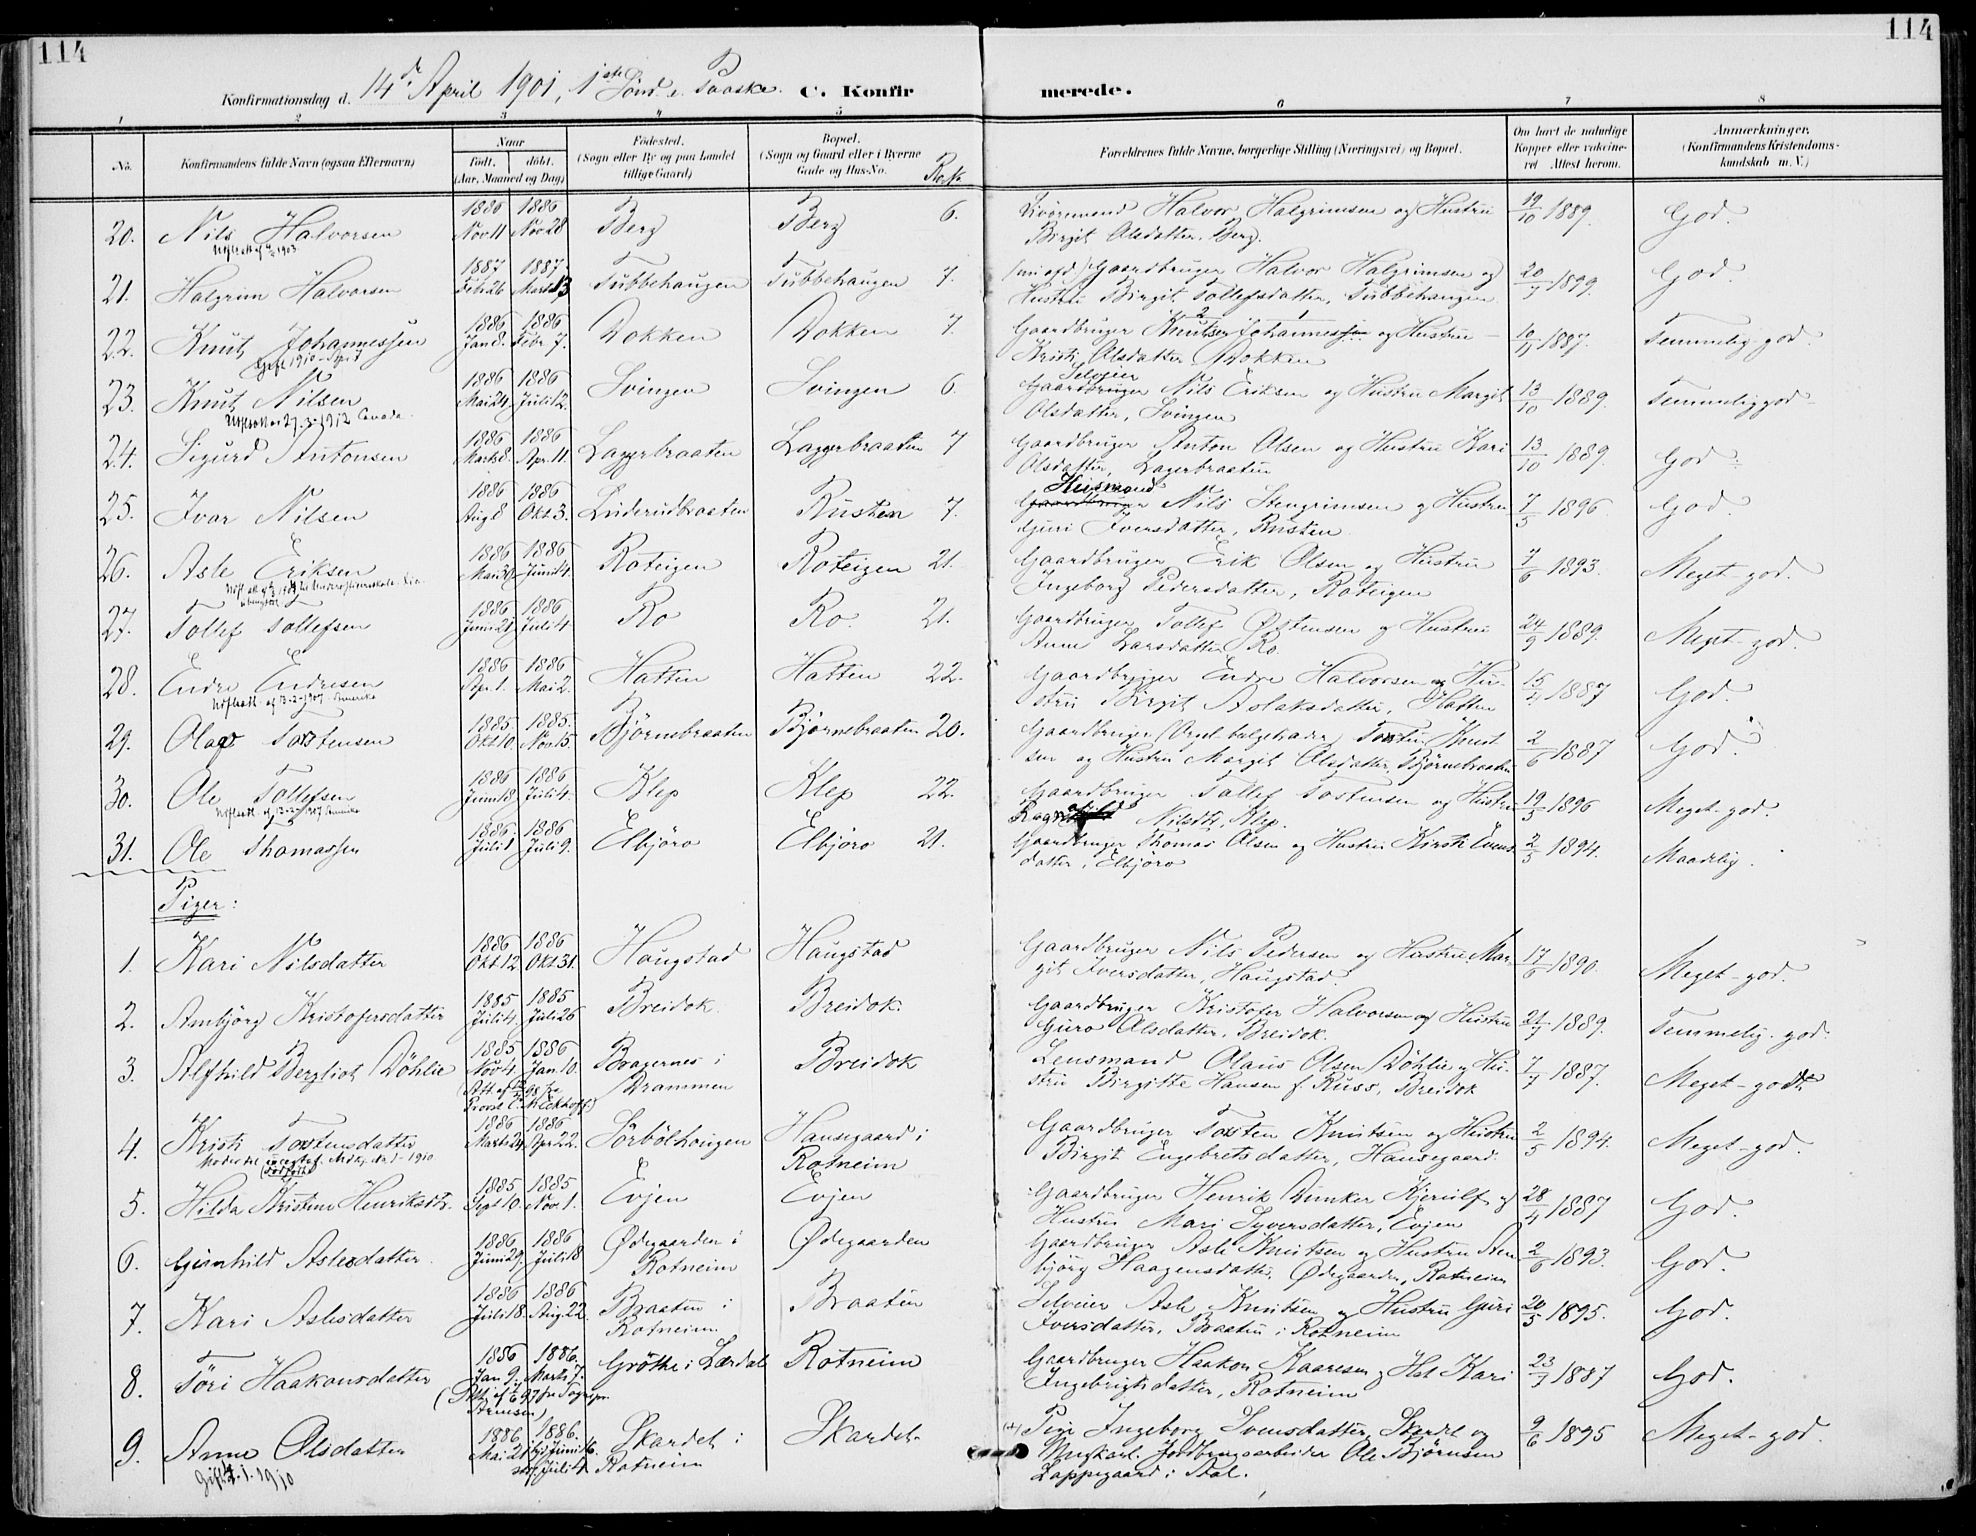 114
114
Konfirmationsdag d. 14de April 1901, 1ste Sønd. e. Paaske. C. Konfir merede.
1 2 3 4 5 6 7 8
No. Konfirmandens fulde Navn (ogsaa Efternavn) Naar født. døbt. (Aar, Maaned og Dag) Fødested. (Sogn eller By og paa Landet tillige Gaard) Bopæl. (Sogn og Gaard eller i Byerne Gade og Hus-No. Forældrenes fulde Navne, borgerlige Stilling (Næringsvei) og Bopæl. Om havt de naturlige Kopper eller vaccineret Attest herom. Anmærkninger. (Konfirmandens Kristendomskundskab m. V.)
20. Nils Halvorsen 1886 Nov 11 1886 Nov 28 Berg Berg 6. Halvor Halgrimsen og Hustru 19/10 1889. God.
Birgit Olsdatter, Berg.
21. Halgrim Halvorsen 1887 Feb 26 1887 Marts 13 Tubbehaugen Tubbehaugen 7. Gaardbruger Halvor Halgrimsen og 20/9 1899. God.
Hustru Birgit Tollefsdatter, Tubbehaugen.
22. Knut Johannessen 1886 Jan 8. 1886 Febr 7. Dokken Dokken 7. Gaardbruger Knutsen Johannes og Hustru 10/9 1887. Temmelig god.
Kristi Olsdatter Dokken
23. Knut Nilsen 1886 Mai 24 1886 Juli 12. Svingen Svingen 6 Gaardbruger Selveier Nils Eriksen og Hustru Margit 13/10 1889. Temmelig god
Olsdatter, Svingen
24. Sigurd Antonsen 1886 Marts 8. 1886 Apr. 11 Lagerbraaten Lagerbraaten 7 Gaardbruger Anton Olsen og Hustru Kari 13/10 1889. God
Olsdatter, Lagerbraaten
25. Ivar Nilsen 1886 Aug 8 1886 Okt 3. Luderudbraaten Rusten 7. Gaardbruger Husmand Nils Stengrimsen og Hustru 7/5 1896 God.
Guri Iversdatter, Rusten.
26. Asle Eriksen 1886 Mai 30 1886 Juni 14. Roteigen Roteigen 21. Gaardbruger Erik Olsen og Hustru 7/6 1893. Meget god.
Ingeborg Pedersdatter, Roteigen
27. Tollef Tollefsen 1886 Juni 21 1886 Juli 4. Ro Ro. 21. Gaardbruger Tollef Østensen og Hustru 24/9 1889. Meget god.
Anne Larsdatter, Ro.
28. Endre Endresen 1886 Apr. 1. 1886 Mai 2. Hatten Hatten 22. Gaardbruger Endre Halvorsen og Hu- 15/4 1887 God.
stru Birgit Aslaksdatter, Hatten
29. Olav Torstensen 1885 Okt 10. 1885. Nov. 15. Bjørnebraaten Bjørnebraaten 20. Gaardbruger Torsten Knut 2/6 1887 God.
sen og Hustru Margit Olsdatter, Bjørnebraaten
30. Ole Tollefsen 1886 Juni 18 1886 Juli 4. Klep Klep 22. Gaardbruger Tollef Torstensen og Hustru 19/5 1896 Meget god.
Nilsdtr, Klep.
31. Ole Thomassen 1886. Juli 1 1886. Juli 9. Elbjøro Elbjøro 21. Gaardbruger Thomas Olsen og Hustru Kirsti Evens- 2/5 1894. Maadelig.
datter, Elbjøro
Piger:
1. Kari Nilsdatter 1886 Okt 12 1886 Okt 31. Haugstad Haugstad Gaardbruger Nils Pedersen og Hustru Mar- 17/6 1890. Meget god.
git Iversdatter, Haugstad.
2. Ambjørg Kristofersdatter 1885 Juli 4. 1885 Juli 26 Breidok. Breidok. Gaardbruger Kristofer Halvorsen og Hustru 1889. Temmelig god.
Guro Olsdatter, Breidok.
3. Alfhild Bergliot Døhlie 1885 Nov 4. 1886 Jan. 10. Bragernes i Drammen Breidok Lensmand Olaus Olsen Døhlie og Hu- 7/7 1887. Meget godt
stru Birgitte Hansen f. Russ, Breidok
4. Kristi Torstensdatter 1886 Marts 24 1886 Apr. 22. Sørbølhaugen Hansegaard i Rotneim Gaardbruger Torsten Knutsen og Hustru 2/5 1894. Meget god.
Birgit Engebretsdatter, Hansegaard.
5. Hilda Kristine Henriksdtr. 1885 Sept 10. 1885 Nov. 1. Evjen Evjen Gaardbruger Henrik Dunker Kjerulf og 28/4 1887 God.
Hustru Mari Syversdatter, Evjen
6. Gunhild Aslesdatter. 1886 Juni 29. 1886 Juli 18 Ødegaarden i Rotneim Ødegaarden Gaardbruger Asle Knutsen og Hustru Am 2/6 1893. God.
bjørg Haagensdatter, Ødegaarden, Rotneim
7. Kari Aslesdatter 1886 Juli 18. 1886 Aug. 22. Braaten i Rotneim Braaten Selveier Asle Knutsen og Hustru Guri 20/5 1895. God.
Iversdatter, Braaten i Rotneim
8. Tøri Haakonsdatter 1886 Jan 9. 1886. Marts 7. Grøthe i Lærdal Rotneim Gaardbruger Haakon Kaaresen og Hst Kari 1887 God.
Ingebrigtsdatter, Rotneim
9. Anne Olsdatter 1886 Mai 21 1886. Juli 4 Skardet i Rotneim Skardet Pige Ingeborg Svensdatter, Skardet og 9/6 1895 Meget god.
Gift 1910 Ungkarl, Jordbrugsarbeider Ole Bjørnsen
Zappegaard i Aal.